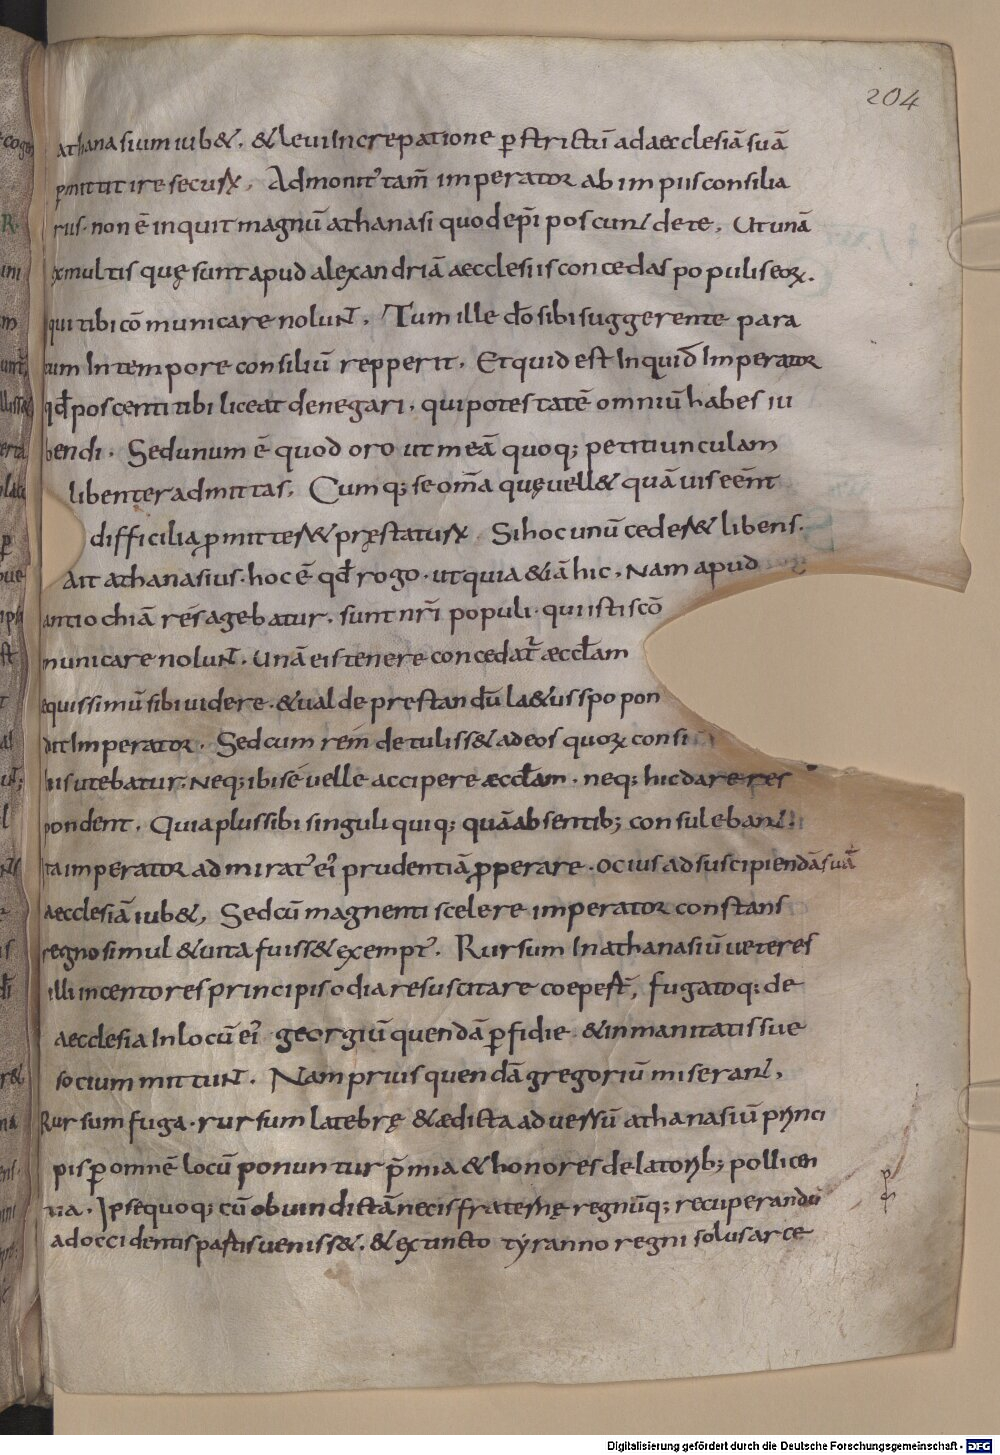 204
athanasium iub&. & leui Increpatione p̱strictū ad aecclesiā suā
p̱mittit ire securū. Admonit᾽ tam̄ imperator ab impiis consilia
riis. non ē inquit magnū athanasi quod ep̄i poscunt de te. Ut unā
ex multis quę sunt apud alexandriā aecclesiis concedas populis eoꝝ.
qui tibi cōmunicare nolunt. Tum ille d̄o sibi suggerente para
tum In tempore consiliū repperit. Et quid est Inquid Imperator
qđ poscenti tibi liceat denegari. qui potestatē omniū habes iu
bendi. Sed unum ē quod oro ut meā quoq; petitiunculam
libenter admittas. Cumq; se om̄a quę uell& quāuis eēnt
difficilia p̱mittes& pręstaturū. Si hoc unū cedes& libens.
Ait athanasius. hoc ē qđ rogo. ut quia & iā hic. Nam apud
antiochiā res agebatur. sunt nr̄i populi. qui istis cō
municare nolunt. Unā eis tenere concedat᾽ æccl̄am
equissimū sibi uidere. & ualde prestandū la&us spopon
dit Imperator. Sed cum rem detuliss& ad eos quoꝝ consi
liis utebatur. Neq; ibi se uelle accipere æccl̄am. neq; hic dare res
pondent. Quia plus sibi singuli quiq; quā absentib; consulebant.
Ita imperator admirat᾽ ei᾽ prudentiā p̱perare. ocius ad suscipiendā suā
aecclesiā iub&. Sed cū magnenti scelere imperator constans
regno simul & uita fuiss& exempt᾽. Rursum In athanasiū ueteres
illi incentores principis odia resuscitare coepest̄, fugatoq; de
aecclesia In locū ei᾽ georgiū quendā p̱fidie & inmanitatis sue
socium mittunt. Nam prius quendā gregoriū miserant.
Rursum fuga. rursum latebrę & ædicta aduersū athanasiū princi
pis p̱ omnē locū ponuntur p̄mia & honores delatorib; pollicen
tia. Ipse quoq; cū ob uindictā necis fraternę regnūq; recuperandū
ad occidentis partis ueniss&. & extincto tyranno regni solus arce
Digitalisierung gefördert durch die Deutsche Forschungsgemeinschaft - DFG